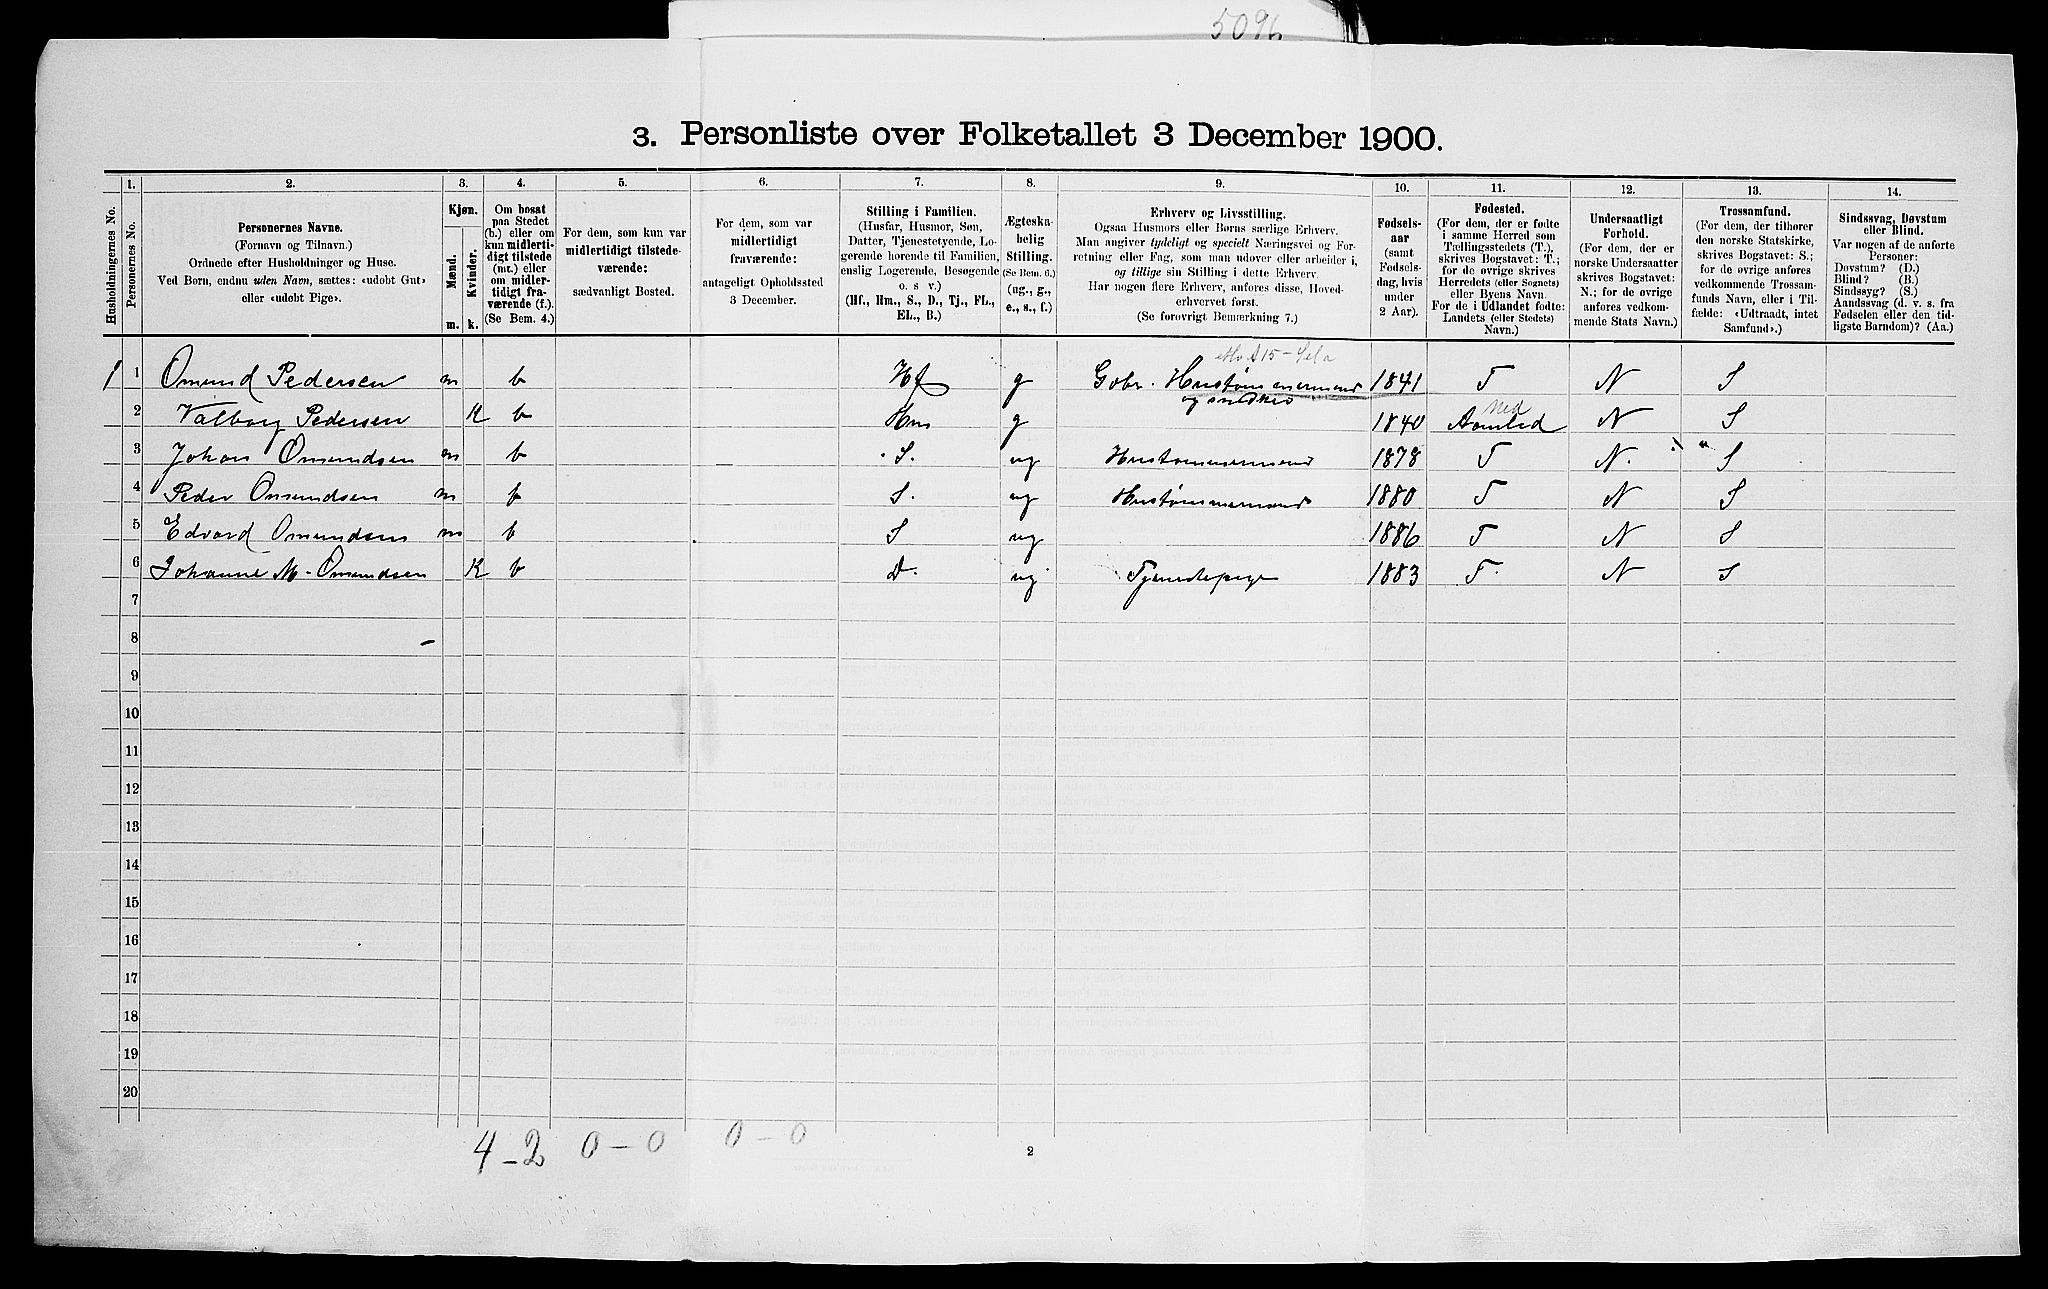 5096
3. Personliste over Folketallet 3 December 1900.
Husholdningernes No.
1.
Personernes No.
2.
Personernes Navne.
(Fornavn og Tilnavn.)
Ordnede efter Husholdninger og Huse.
Ved Børn, endnu uden Navn, sættes: «udøbt Gut»
eller «udøbt Pige».
3.
Kjøn.
Mænd.
Kvinder.
m. k.
4.
Om bosat
paa Stedet
(b.) eller om
kun midlerti-
digt tilstede
(mt.) eller
om midler-
tidigt fra-
værende (f.).
(Se Bem. 4.)
5.
For dem, som kun var
midlertidigt tilstede-
værende:
sædvanligt Bosted.
6.
For dem, som var
midlertidigt
fraværende:
antageligt Opholdssted
3 December.
7.
Stilling i Familien.
(Husfar, Husmor, Søn,
Datter, Tjenestetyende, Lo-
gerende hørende til Familien,
enslig Logerende, Besøgende
o. s v.)
(Hf., Hm., S., D., Tj., FL.,
EL., B.)
8.
Ægteska-
belig
Stilling.
(Se Bem. 6.)
(ug., g.,
e., s., f.)
9.
Erhverv og Livsstilling.
Ogsaa Husmors eller Børns særlige Erhverv.
Man angiver tydeligt og specielt Næringsvei og For-
retning eller Fag, som man udover eller arbeider i,
og tillige sin Stilling i dette Erhverv.
Har nogen flere Erhverv, anføres disse, Hoved-
erhvervet først.
(Se forøvrigt Bemærkning 7.)
10.
Fødsels-
aar
(samt
Fødsels-
dag, hvis
under
2 Aar).
11.
Fødested.
(For dem, der er fødte
i samme Herred som
Tællingsstedets (T.),
skrives Bogstavet: T.;
for de øvrige skrives
Herredets (eller Sognets)
eller Byens Navn.
For de i Udlandet fødte:
Landets (eller Stedets)
Navn.)
12.
Undersaatligt
Forhold.
(For dem, der er
norske Undersaatter
skrives Bogstavet:
N.; for de øvrige
anføres vedkom-
mende Stats Navn.)
13.
Trossamfund.
(For dem, der tilhører
den norske Statskirke,
skrives Bogstavet: S.;
for de øvrige anføres
vedkommende Trossam-
funds Navn, eller i Til-
fælde: «Udtraadt, intet
Samfund».)
14.
Sindssvag, Døvstum
eller Blind.
Var nogen af de anførte
Personer:
Døvstum? (D.)
Blind? (B.)
Sindssyg? (S.)
Aandssvag (d. v. s. fra
Fødselen eller den tid-
ligste Barndom)? (Aa.)
1 1 Omund Pedersen m b Hf g Gbr. Hustømmermand 1841 T N S
og snedker
2 Valborg Pedersen K b Hm g 1840 Aamlid N S
3 Johan Omundsen m b S. ug Hustømmermand 1878 T N. S
4 Peder Omundsen m b S. ug Hustømmermand 1880 T N S
5 Edvard Omundsen m b S ug 1886 T N S
6 Johanne M. Omundsen K b D. ug Tjenestepige 1883 T. N S
7
8
9
10
11
12
13
14
15
16
17
18
19
20
4 - 2 0 - 0 0 - 0
2